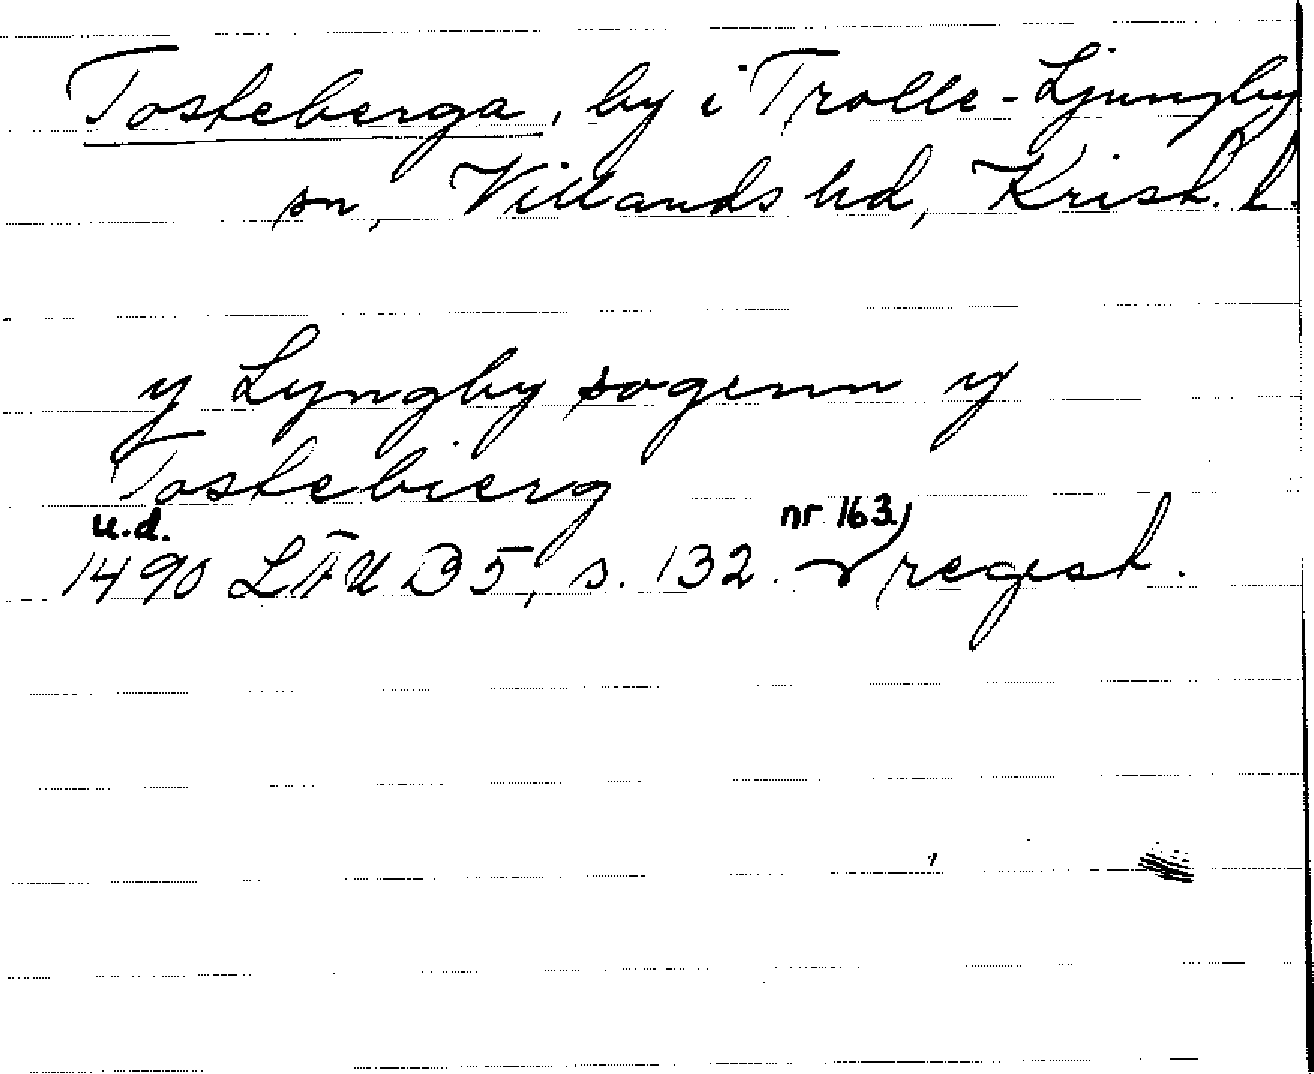 Tosteberga, by i Trolle-Ljungby
sn, Villands hd, Krist. l.
y Lyngby sogenn y
Tostebierg
u.d. nr 163)
1490 LÄU B 5, s. 132. regest.